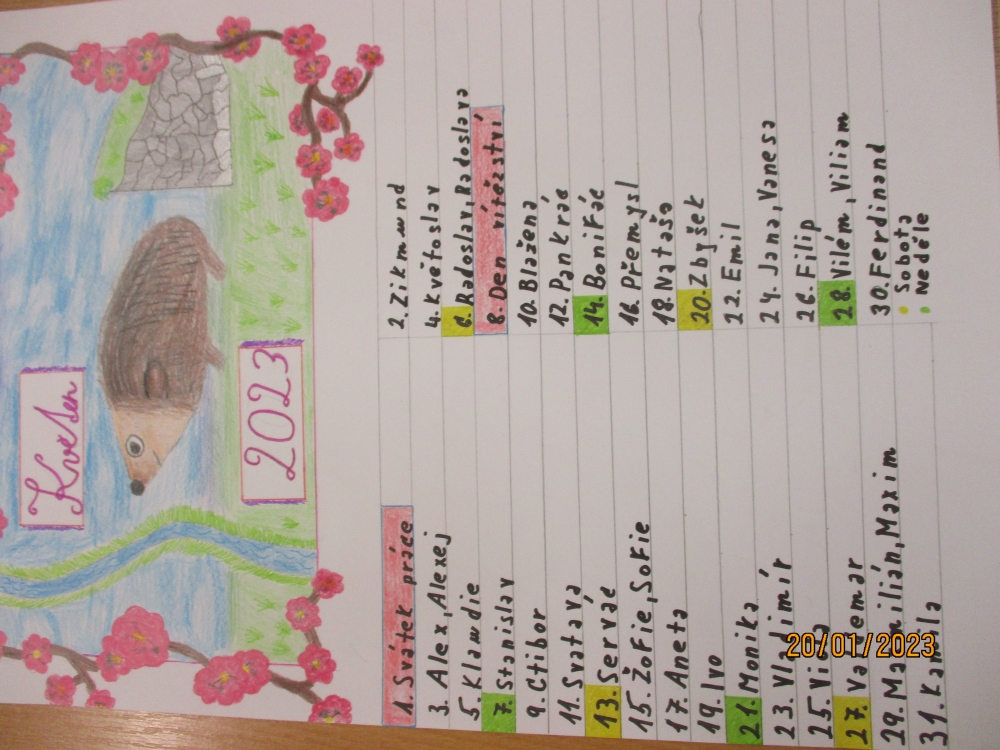 Květen
2023
1. Svátek práce
2. Zikmund
3. Alex, Alexej
4. Květoslav
5. Klaudie
6. Radoslav, Radoslava
7. Stanislav
8. Den vítězství
9. Ctibor
10. Blažena
11. Svatava
12. Pankrác
13. Servác
14. Bonifác
15. Žofie, Sofie
16. Přemysl
17. Aneta
18. Nataša
19. Ivo
20. Zbyšek
21. Monika
22. Emil
23. Vladimír
24. Jana, Vanesa
25.
26. Filip
27. Valdemar
28. Vilém, Viliam
29. Maxmilián, Maxim
30. Ferdinand
31. Kamila
Sobota
Neděle
20/01/2023